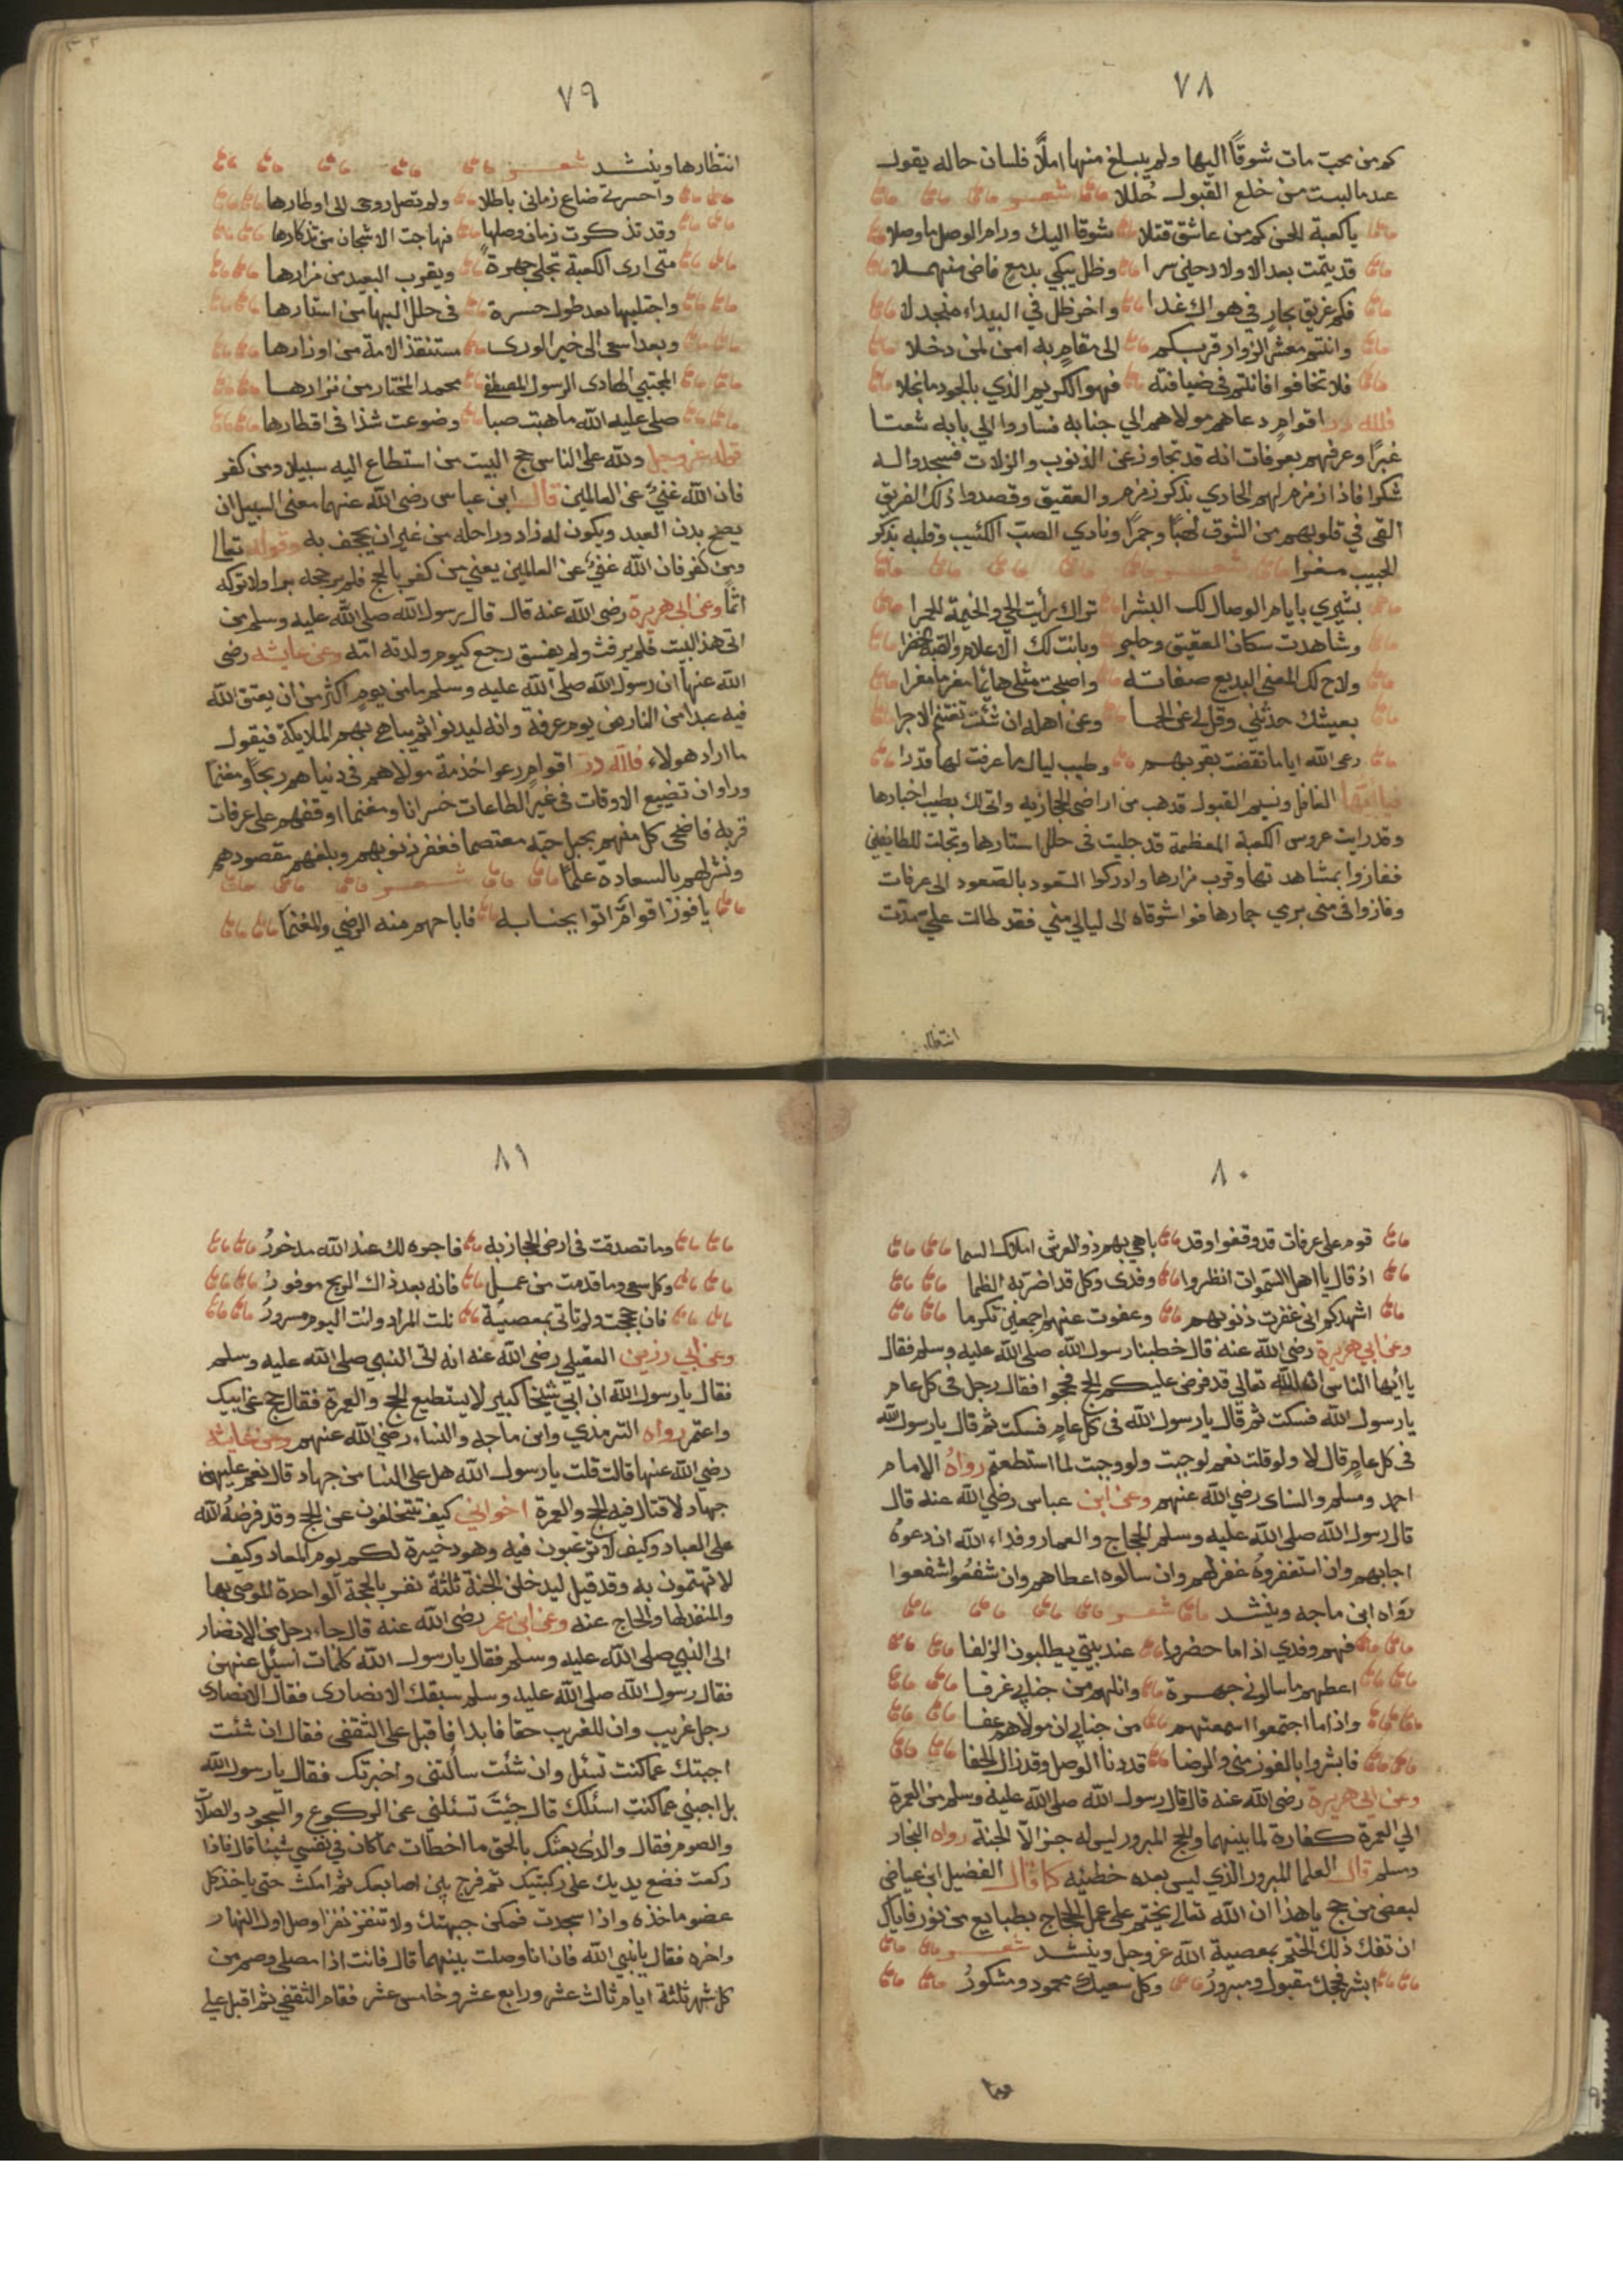 ٧٨
كم من محب مات شوقًا اليها ولم يبلغ منها املًا فلسان حاله يقول
عندما لبست من خلع القبول حُللا شعر
يا كعبة الحسن كم من عاشق قتلا شوقا اليك ورام الوصل ما وصلا
قد يتمت بعد الاولاد حلين سرا وظل يبكي بدمع فاض منهملا
فكم غريق بحارٍ في هواك غدا واخر ظل في البيداء منجدلا
وانتم معشر الزوار قربكم الى مقامٍ به امن لمن دخلا
فلا تخافوا فانتم في ضيافته فهو الكريم الذي بالجود ما بخلا
فلله در اقوامٍ دعاهم مولاهم الي جنابه فساروا الي بابه شعثا
غبرًا وعرفهم بعرفات انه قد تجاوز عن الذنوب والزلات فسجدوا له
شكرا فاذا زمزم لهم الحادي بذكر زمزم والعقيق وقصدوا ذلك الفريق
القى في قلوبهم من الشوق لهبًا وجمرًا ونادي الصب الكئيب وقلبه بذكر
الحبيب مغرا شعر
بشيري بايام الوصال لك البشرا تراك رأيت الحي والخيمة الحمرا
وشاهدت سكان العقيق وحاجر وبانت لك الاعلام والقبة الخضرا
ولاح لك المغنى البديع صفاته واصبحت مثلي هائمًا مغرمًا مغرا
بعيشك حدثني وقل لي عن الحما وعن اهله ان شئت تغتنم الاجرا
رعى الله اياما تقضت بقربهم وطيب ليال ما عرفت لها قدرا
فيا ايها الغافل ونسيم القبول قد هب من اراضى الحجازيه واتى لك بطيب اخبارها
وقد رايت عروس الكعبة المعظمة قد جليت في حلل استارها وتجلت للطايفين
ففازوا بمشاهدتها وقرب مزارها وادركوا السعود بالصعود الى عرفات
وفازوا في منى برمي جمارها فوا شوقاه الى ليالي مني فقد طالت علي مدت
انتظار
٧٩
انتظارها وينشد شعر
واحسرتي ضاع زماني باطلا ولم تصل روحى الى اوطارها
وقد تذكرت زمان وصلها فهاجت الاشجان من تذكارها
متى ارى الكعبة تجلى جهرةً ويقرب البعيد من مزارها
واجتليها بعد طول حسرة في حلل البها من استارها
وبعد اسعى الى خير الورى مستنقذ الامة من اوزارها
المجتبي الهادى الرسول المصطفى محمد المختار من نزارها
صلى عليه الله ما هبت صبا وضوعت شذا في اقطارها
قوله عز وجل ولله على الناس حج البيت من استطاع اليه سبيلا ومن كفر
فان الله غنيٌ عن العالمين قال ابن عباس رضى الله عنهما معنى السبيل ان
يصح بدن العبد ويكون له زاد وراحله من غير ان يجحف به وقوله تعالى
ومن كفر فان الله غنيٌ عن العالمين يعني من كفر بالحج فلم ير حجه برا ولا تركه
اثمًا وعن ابي هريرة رضى الله عنه قال قال رسول الله صلى الله عليه وسلم من
اتى هذ البيت فلم يرفث ولم يفسق رجع كيوم ولدته امّه وعن عايشه رضى
الله عنها ان رسول الله صلى الله عليه وسلم ما من يومٍ اكثر من ان يعتق الله
فيه عبدا من النار من يوم عرفة وانه ليدنو اثم يباهي بهم الملايكة فيقول
ما اراد هولاء فلله در اقوامٍ رعوا خذمة مولاهم في دنياهم ربحًا ومغنما
وراوا ان تضييع الاوقات في غير الطاعات خسرانا ومغنما اوقفهم على عرفات
قربه فاضحى كل منهم بحبل حبّه معتصما فغفر ذنوبهم وبلغهم مقصودهم
ونشر لهم بالسعادة علمًا شعر
يا فوز اقوامًّ اتوا بجنابه فاباحهم منه الرضي والمغنما
٨٠
قوم على عرفات قد وقفوا وقد باهي بهم ذو العرش املاك السما
اذ قال يا اهل السموات انظروا وفدى وكل قد اضر به الظما
اشهدكم اني غفرت ذنوبهم وعفوت عنهم اجمعين تكرما
وعن ابي هريرة رضي الله عنه قال خطبنا رسول الله صلى الله عليه وسلم فقال
يا أيها الناس ان الله تعالي قد فرض عليكم الحج فحجوا فقال رجل في كل عام
يا رسول الله فسكت ثم قال يا رسول الله في كل عامٍ فسكت ثم قال يا رسول الله
في كل عامٍ قال لا ولو قلت نعم لوجبت ولو وجبت لما استطعتم رواهُ الامام
احمد ومسلم والنساى رضي الله عنهم وعن ابن عباس رضي الله عنه قال
قال رسول الله صلى الله عليه وسلم الحجاج والعمار وفداء الله ان دعوهُ
اجابهم وان استغفروهُ غفر لهم وان سالوه اعطاهم وان شفعُوا شفعوا
رَواه ابن ماجه وينشد شعر
فهم وفدي اذا ما حضروا عند بيتي يطلبون الزلفا
اعطهم ما سالوني جهرة وانلهم من جنابي غرفا
واذا ما اجتمعوا اسمعتهم من جنابي ان مولاهم عفا
فابشروا بالفوز مني والرضا قد دنا الوصل وقد زال الجفا
وعن ابي هريرة رضي الله عنه قال قال رسول الله صلى الله عليه وسلم من العمرة
الي العمرة كفارة لما بينهما والحج المبرور ليس له جزا الاّ الجنة رواه البخار
ومسلم قال العلما المبرور الذي ليس بعده خطيئه كما قال الفضيل ابن عياض
لبعض من حج يا هذا ان الله تعالى يختم على عمل الحجاج بطبايع من نور فاياك
ان تفك ذلك الختم بمعصية الله عز وجل وينشد شعر
ابشر فحجك مقبول ومبرورُ وكل سعيك محمود ومشكورُ
وما
٨١
وما تصدقت في ارض الحجاز به فاجره لك عند الله مدخورُ
وكل سعى وما قدمت من عمل فانه بعد ذاك الربح موفورُ
فان حججت ولم تاتى بمعصيةٍ نلت المراد وانت اليوم مسرورُ
وعن ابي رزين العقيلي رضي الله عنه انه اتى النبي صلى الله عليه وسلم
فقال يا رسول الله ان ابي شيخا كبير لا يستطيع الحج والعمرة فقال حج عن ابيك
واعتمر رواه الترمذي وابن ماجه والنساء رضي الله عنهم وعن عايشه
رضي الله عنها قالت قلت يا رسول الله هل على النسا من جهاد قال نعم عليهن
جهاد لا قتال فيه الحج والعمرة اخواني كيف تتخلفون عن الحج وقد فرضهُ الله
على العباد وكيف لا ترغبون فيه وهو ذخيرة لكم يوم المعاد وكيف
لا تهتمون به وقد قيل ليدخلن الجنة ثلثة نفر بالحجة الواحدة الموصى بها
والمنفذ لها والحاج عنه وعن ابن عمر رضى الله عنه قال جاء رجل من الانصار
الى النبي صلى الله عليه وسلم فقال يا رسول الله كلمات اسئل عنهن
فقال رسول الله صلى الله عليه وسلم سبقك الانصارى فقال الانصارى
رجل غريب وان للغريب حقا فابدا فاقبل على الثقفى فقال ان شئت
اجبتك عما كنت تسئل وان شئت سألتنى واخبرتك فقال يا رسول الله
بل اجبني عما كنت اسئلك قال جئت تسئلنى عن الركوع والسجود والصلاة
والصوم فقال والذى بعثك بالحق ما اخطات مما كان في نفسي شيئا قال فاذا
ركعت فضع يديك على ركبتيك ثم فرج بين اصابعك ثم امكث حتى ياخذ كل
عضو ماخذه واذا سجدت فمكن جبهتك ولا تنقر نقرا وصل اول النهار
واخره فقال يا نبي الله فان انا وصلت بينهما قال فانت اذا مصلى وصم من
كل شهر ثلثة ايام ثالث عشر ورابع عشر وخامس عشر فقام الثقفي ثم اقبل علي